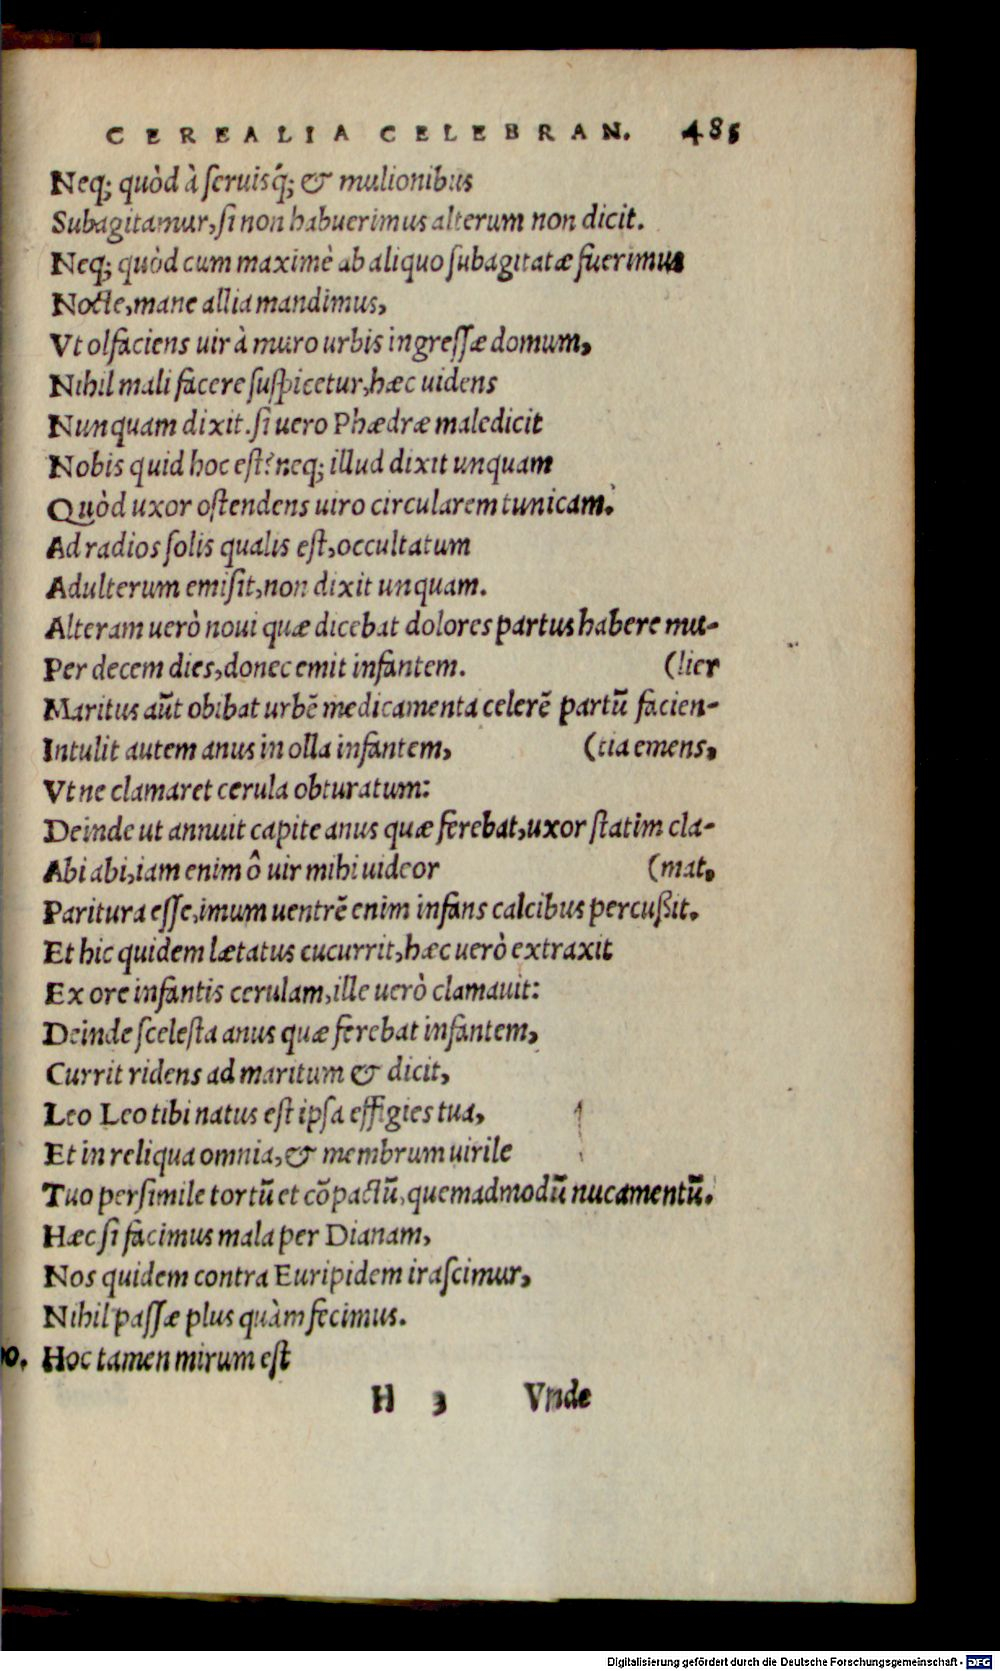 CEREALIA CELEBRAN. 485
Neq; quòd à seruisq́; & mulionibus
Subagitamur, si non habuerimus alterum non dicit.
Neq; quòd cum maximè ab aliquo subagitatæ fuerimus
Nocte, mane allia mandimus,
Vt olfaciens uir à muro urbis ingressæ domum,
Nihil mali facere suspicetur, hæc uidens
Nunquam dixit. si uero Phædræ maledicit
Nobis quid hoc est? neq; illud dixit unquam
Quòd uxor ostendens uiro circularem tunicam.
Ad radios solis qualis est, occultatum
Adulterum emisit, non dixit unquam.
Alteram uerò noui quæ dicebat dolores partus habere mu-
Per decem dies, donec emit infantem. (lier
Maritus aũt obibat urbẽ medicamenta celerẽ partũ facien-
Intulit autem anus in olla infantem, (tia emens,
Vt ne clamaret cerula obturatum:
Deinde ut annuit capite anus quæ ferebat, uxor statim cla-
Abi abi, iam enim ô uir mihi uideor (mat,
Paritura esse, imum uentrẽ enim infans calcibus percußit.
Et hic quidem lætatus cucurrit, hæc uerò extraxit
Ex ore infantis cerulam, ille uerò clamauit:
Deinde scelesta anus quæ ferebat infantem,
Currit ridens ad maritum & dicit,
Leo Leo tibi natus est ipsa effigies tua,
Et in reliqua omnia, & membrum uirile
Tuo persimile tortũ et cõpactũ, quemadmodũ nucamentũ.
Hæc si facimus mala per Dianam,
Nos quidem contra Euripidem irascimur,
Nihil passæ plus quàm fecimus.
Hoc tamen mirum est
H 3 Vnde
Digitalisierung gefördert durch die Deutsche Forschungsgemeinschaft - DFG